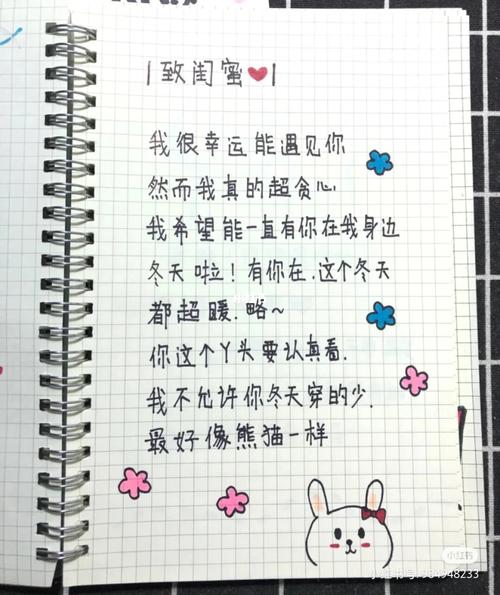 |致闺蜜❤|
我很幸运能遇见你
然而我真的超贪心
我希望能一直有你在我身边
冬天啦！有你在.这个冬天
都超暖.略~
你这个丫头要认真看.
我不允许你冬天穿的少.
最好像熊猫一样
小红书